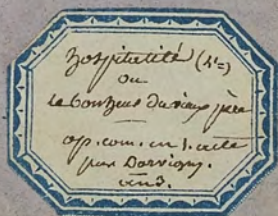 hospitalité (L'=)
ou
le bonheur du vieux père
op. com. en 1. acte
par Dorvigny.
an 3.